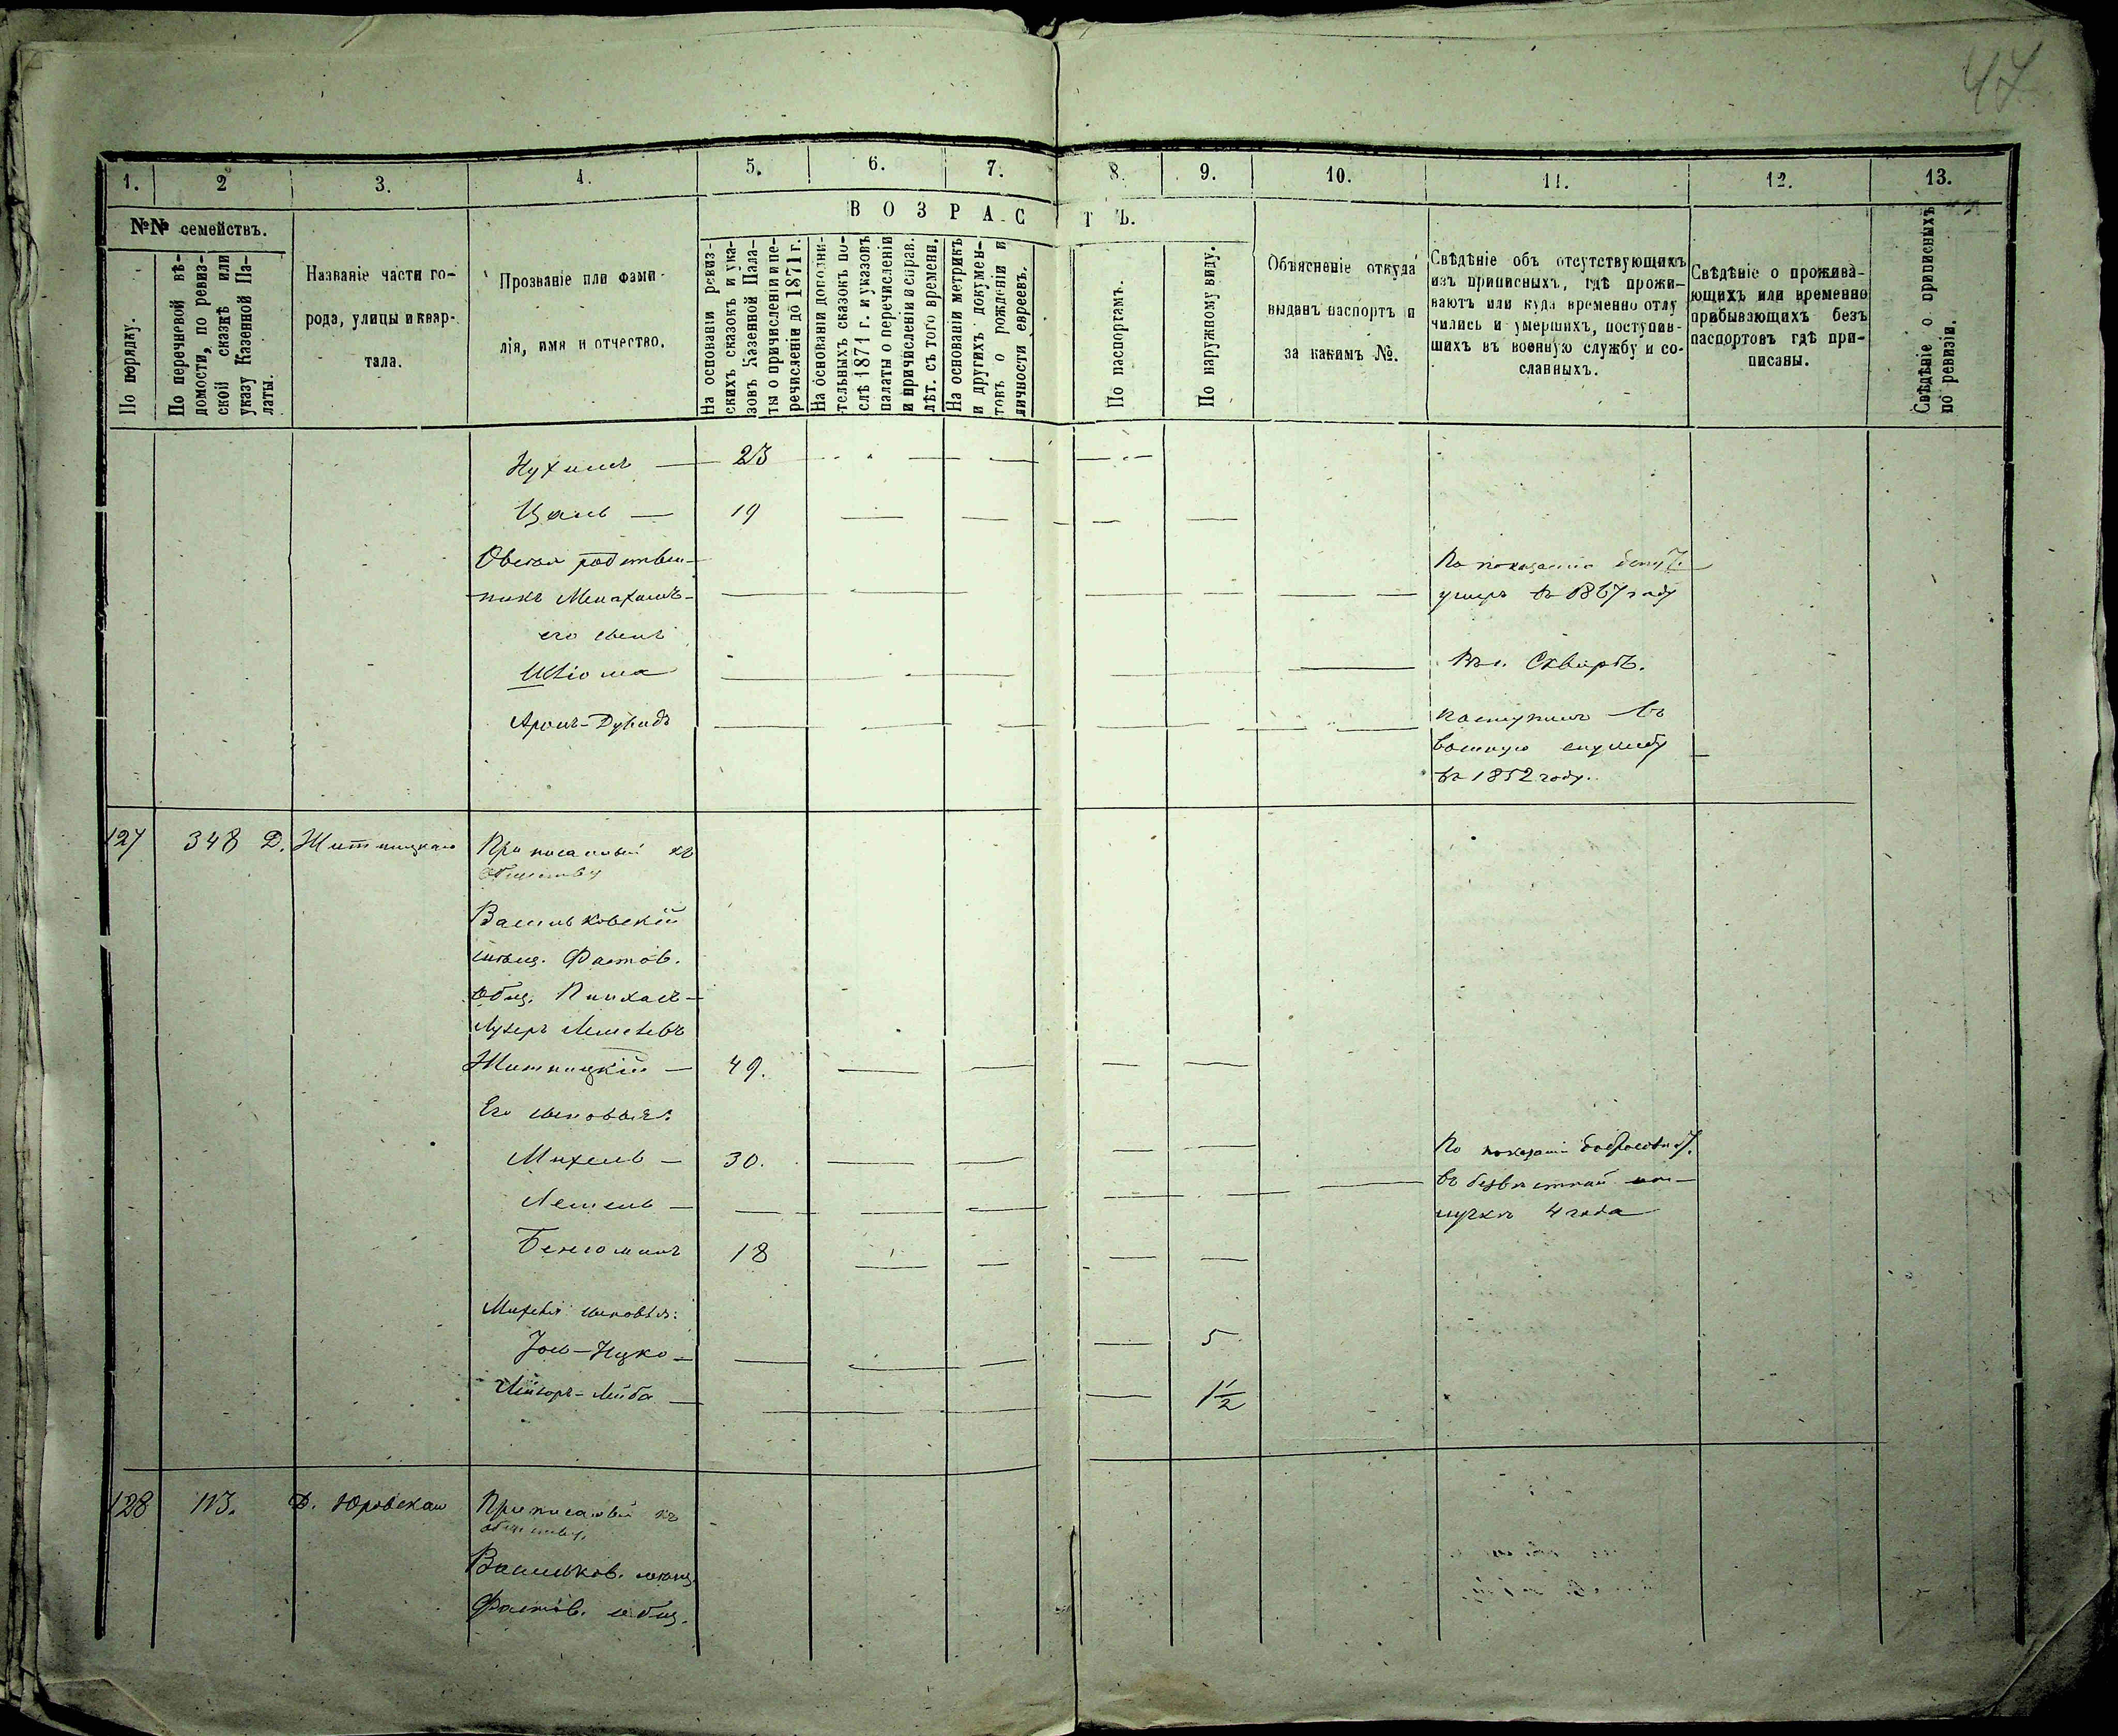 47
1. 2 3. 4. 5. 6. 7. 8. 9. 10. 11. 12. 13.
В О З Р А С Т Ъ.
№№ семействъ.
По порядку.
По перечневой вѣ-
домости, по ревиз-
ской сказкѣ или
указу Казенной Па-
латы.
Названіе части го-
рода, улицы и квар-
тала.
Прозваніе или фами-
лія, имя и отчество.
На основаніи ревиз-
скихъ сказокъ и ука-
зовъ Казенной Пала-
ты о причисленіи и пе-
речисленіи до 1871 г.
На основаніи дополни-
тельныхъ сказокъ по-
слѣ 1871 г. и указовъ
палаты о перечисленіи
и причисленіи и справ.
лѣт. съ того времени.
На основаніи метрикъ
и другихъ докумен-
товъ о рожденіи и
личности евреевъ.
По паспортамъ.
По наружному виду.
Объясненіе откуда
выданъ паспортъ и
за какимъ №.
Свѣдѣніе объ отсутствующихъ
изъ приписныхъ, гдѣ прожи-
ваютъ или куда временно отлу
чились и умершихъ, поступив-
шихъ въ военную службу и со-
сланныхъ.
Свѣдѣніе о прожива-
ющихъ или временно
пребывающихъ безъ
паспортовъ гдѣ при-
писаны.
Свѣдѣніе о приписныхъ
по ревизіи.
Нухимъ — 23
— 19
родствен-
никъ Менахемъ - умеръ въ 1867 году
его сынъ
Шліома Сквирѣ.
Аронъ-Дувидъ поступилъ въ
военную службу
въ 1852 году.
127 348 Д. Житницкаго Приписанный къ
обществу
Васильковскій
мѣщ. Фастов.
общ. Пинхасъ-
Лейзеръ
Житницкій — 49.
Его сыновья:
Михель — 30. По показанію
въ безвѣстной от-
лучкѣ 4 года
Бенюминъ 18
Михеля сыновья:
Іось-Ицко — 5
Лейба — 1½
128 113. Д. Юровская Приписанный къ
обществу
Васильков. мѣщ.
Фастов. общ.